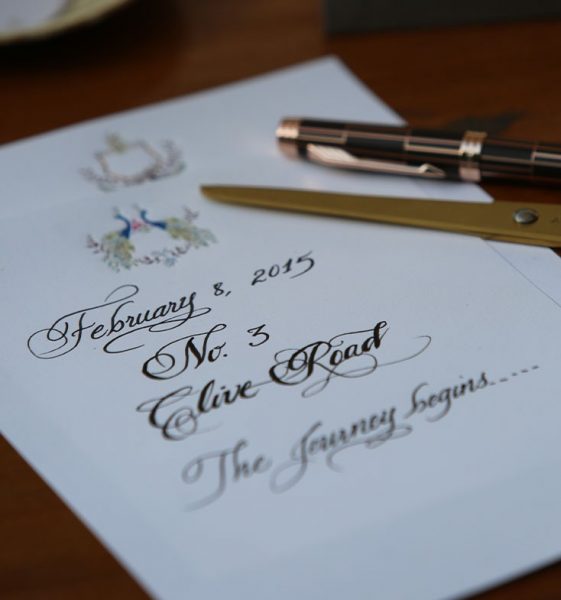 February 8, 2015
No. 3
Clive Road
The Journey begins.....